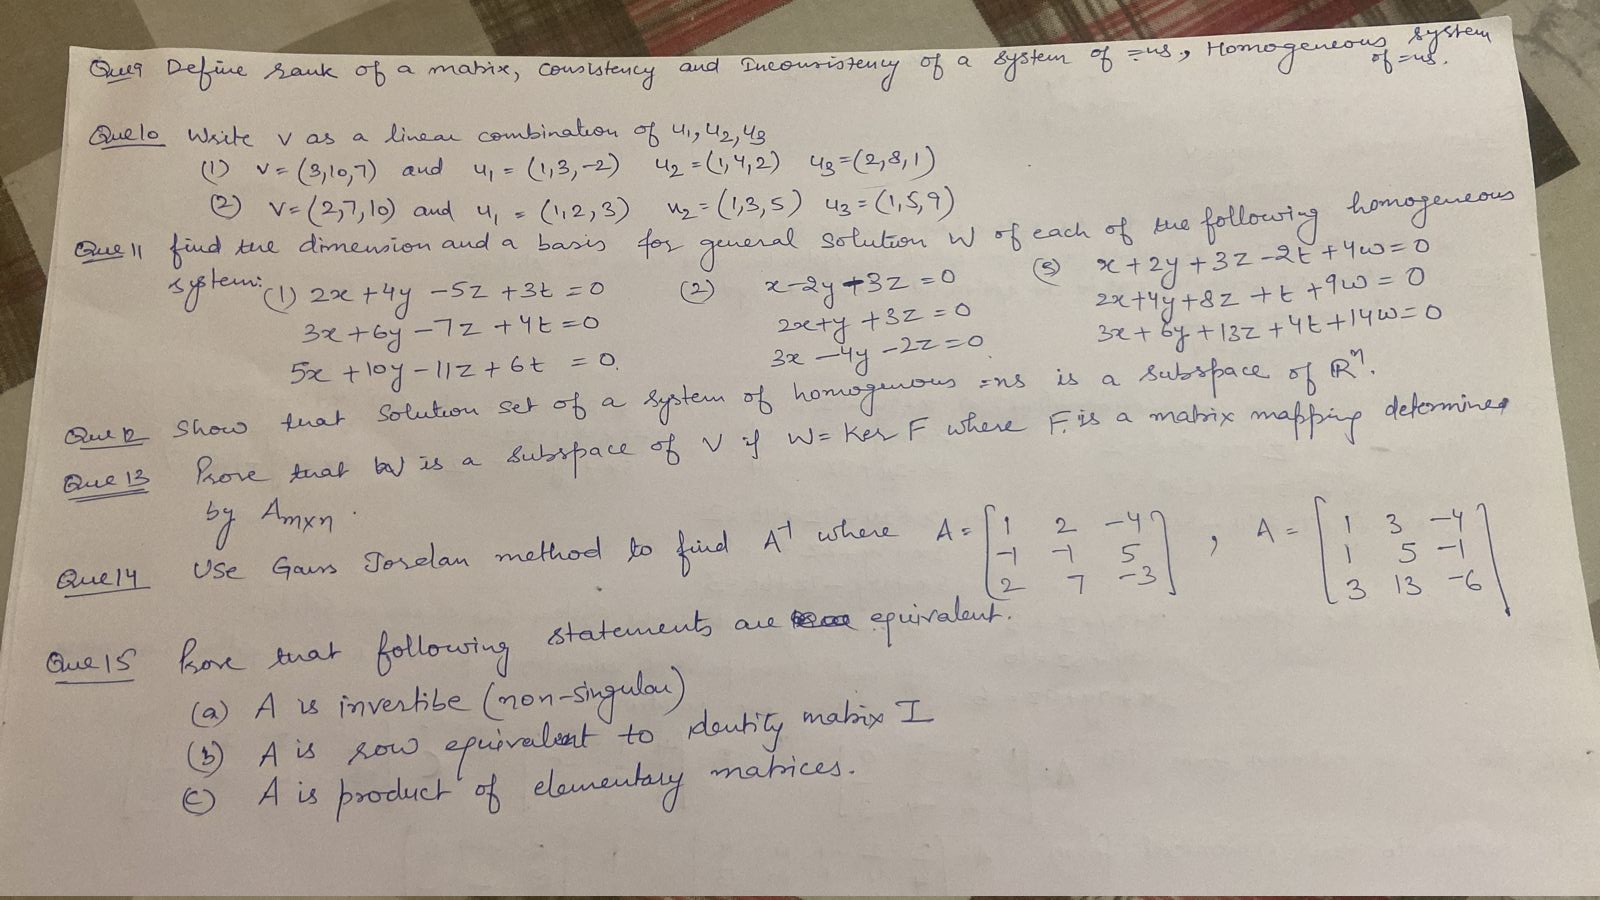 Que9 Define rank of a matrix, Consistency and Inconsistency of a system of =ns, Homogeneous system of =ns.
Que10 Write v as a linear combination of u1, u2, u3
(1) v = (3,10,7) and u1 = (1,3,-2) u2 = (1,4,2) u3 = (2,8,1)
(2) v = (2,7,10) and u1 = (1,2,3) u2 = (1,3,5) u3 = (1,5,9)
Que11 find the dimension and a basis for general solution W of each of the following homogeneous
system: (1) 2x + 4y - 5z + 3t = 0 (2) x - 2y + 3z = 0 (3) x + 2y + 3z - 2t + 4w = 0
3x + 6y - 7z + 4t = 0 2x + y + 3z = 0 2x + 4y + 8z + t + 9w = 0
5x + 10y - 11z + 6t = 0. 3x - 4y - 2z = 0 3x + 6y + 13z + 4t + 14w = 0
Que12 Show that Solution set of a system of homogenous =ns is a subspace of ℝⁿ.
Que13 Prove that W is a subspace of V if W = Ker F where F is a matrix mapping determined
by Amxn.
Que14 Use Gauss Jordan method to find A⁻¹ where A = [1 2 -4 , A = [1 3 -4
-1 -1 5 1 5 -1
2 7 -3] 3 13 -6]
Que15 Prove that following statements are equivalent.
(a) A is invertibe (non-singular)
(b) A is row equivalent to identity matrix I
(c) A is product of elementary matrices.